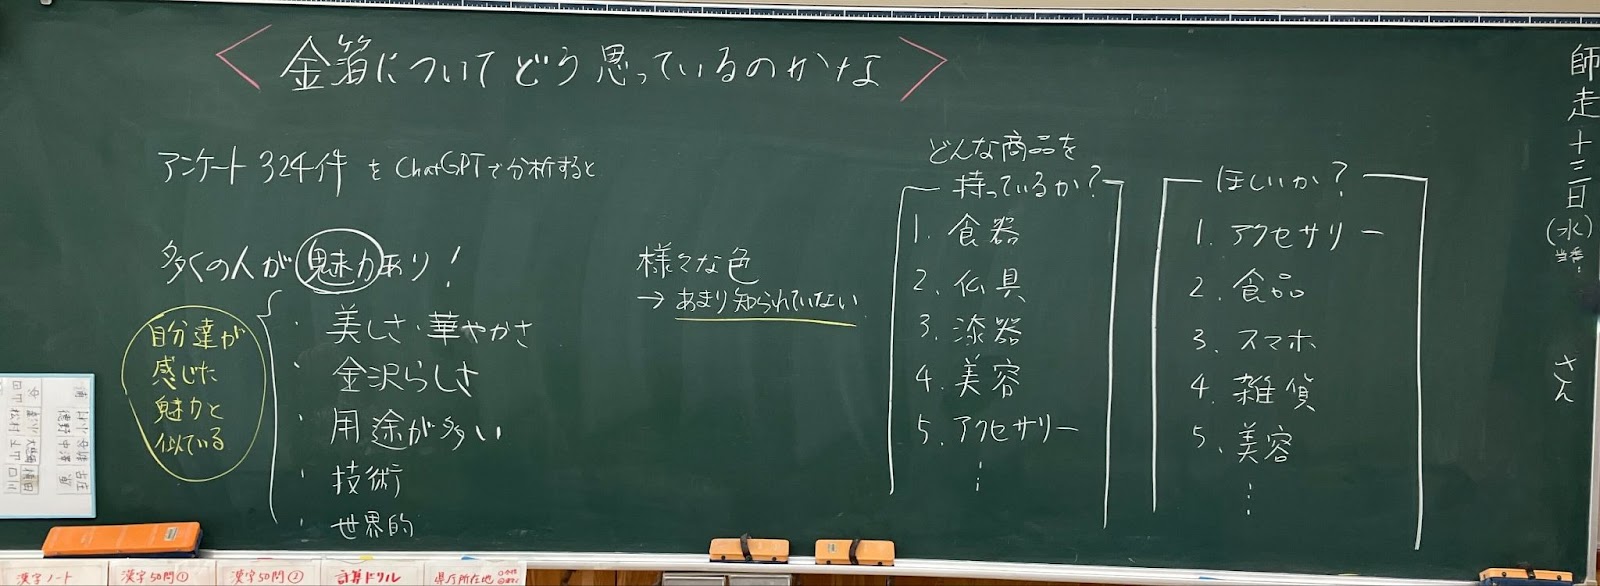 ＜金箔についてどう思っているのかな＞
アンケート324件をChatGPTで分析すると
多くの人が魅力あり!
・美しさ・華やかさ
・金沢らしさ
・用途が多い
・技術
・世界的
自分達が
感じた
魅力と
似ている
様々な色
→あまり知られていない
どんな商品を
持っているか?
1. 食器
2. 仏具
3. 漆器
4. 美容
5. アクセサリー
⋮
ほしいか?
1. アクセサリー
2. 食品
3. スマホ
4. 雑貨
5. 美容
⋮
師走十三日(水)
当番:
さん
漢字ノート
漢字50問①
漢字50問②
計算ドリル
県庁所在地